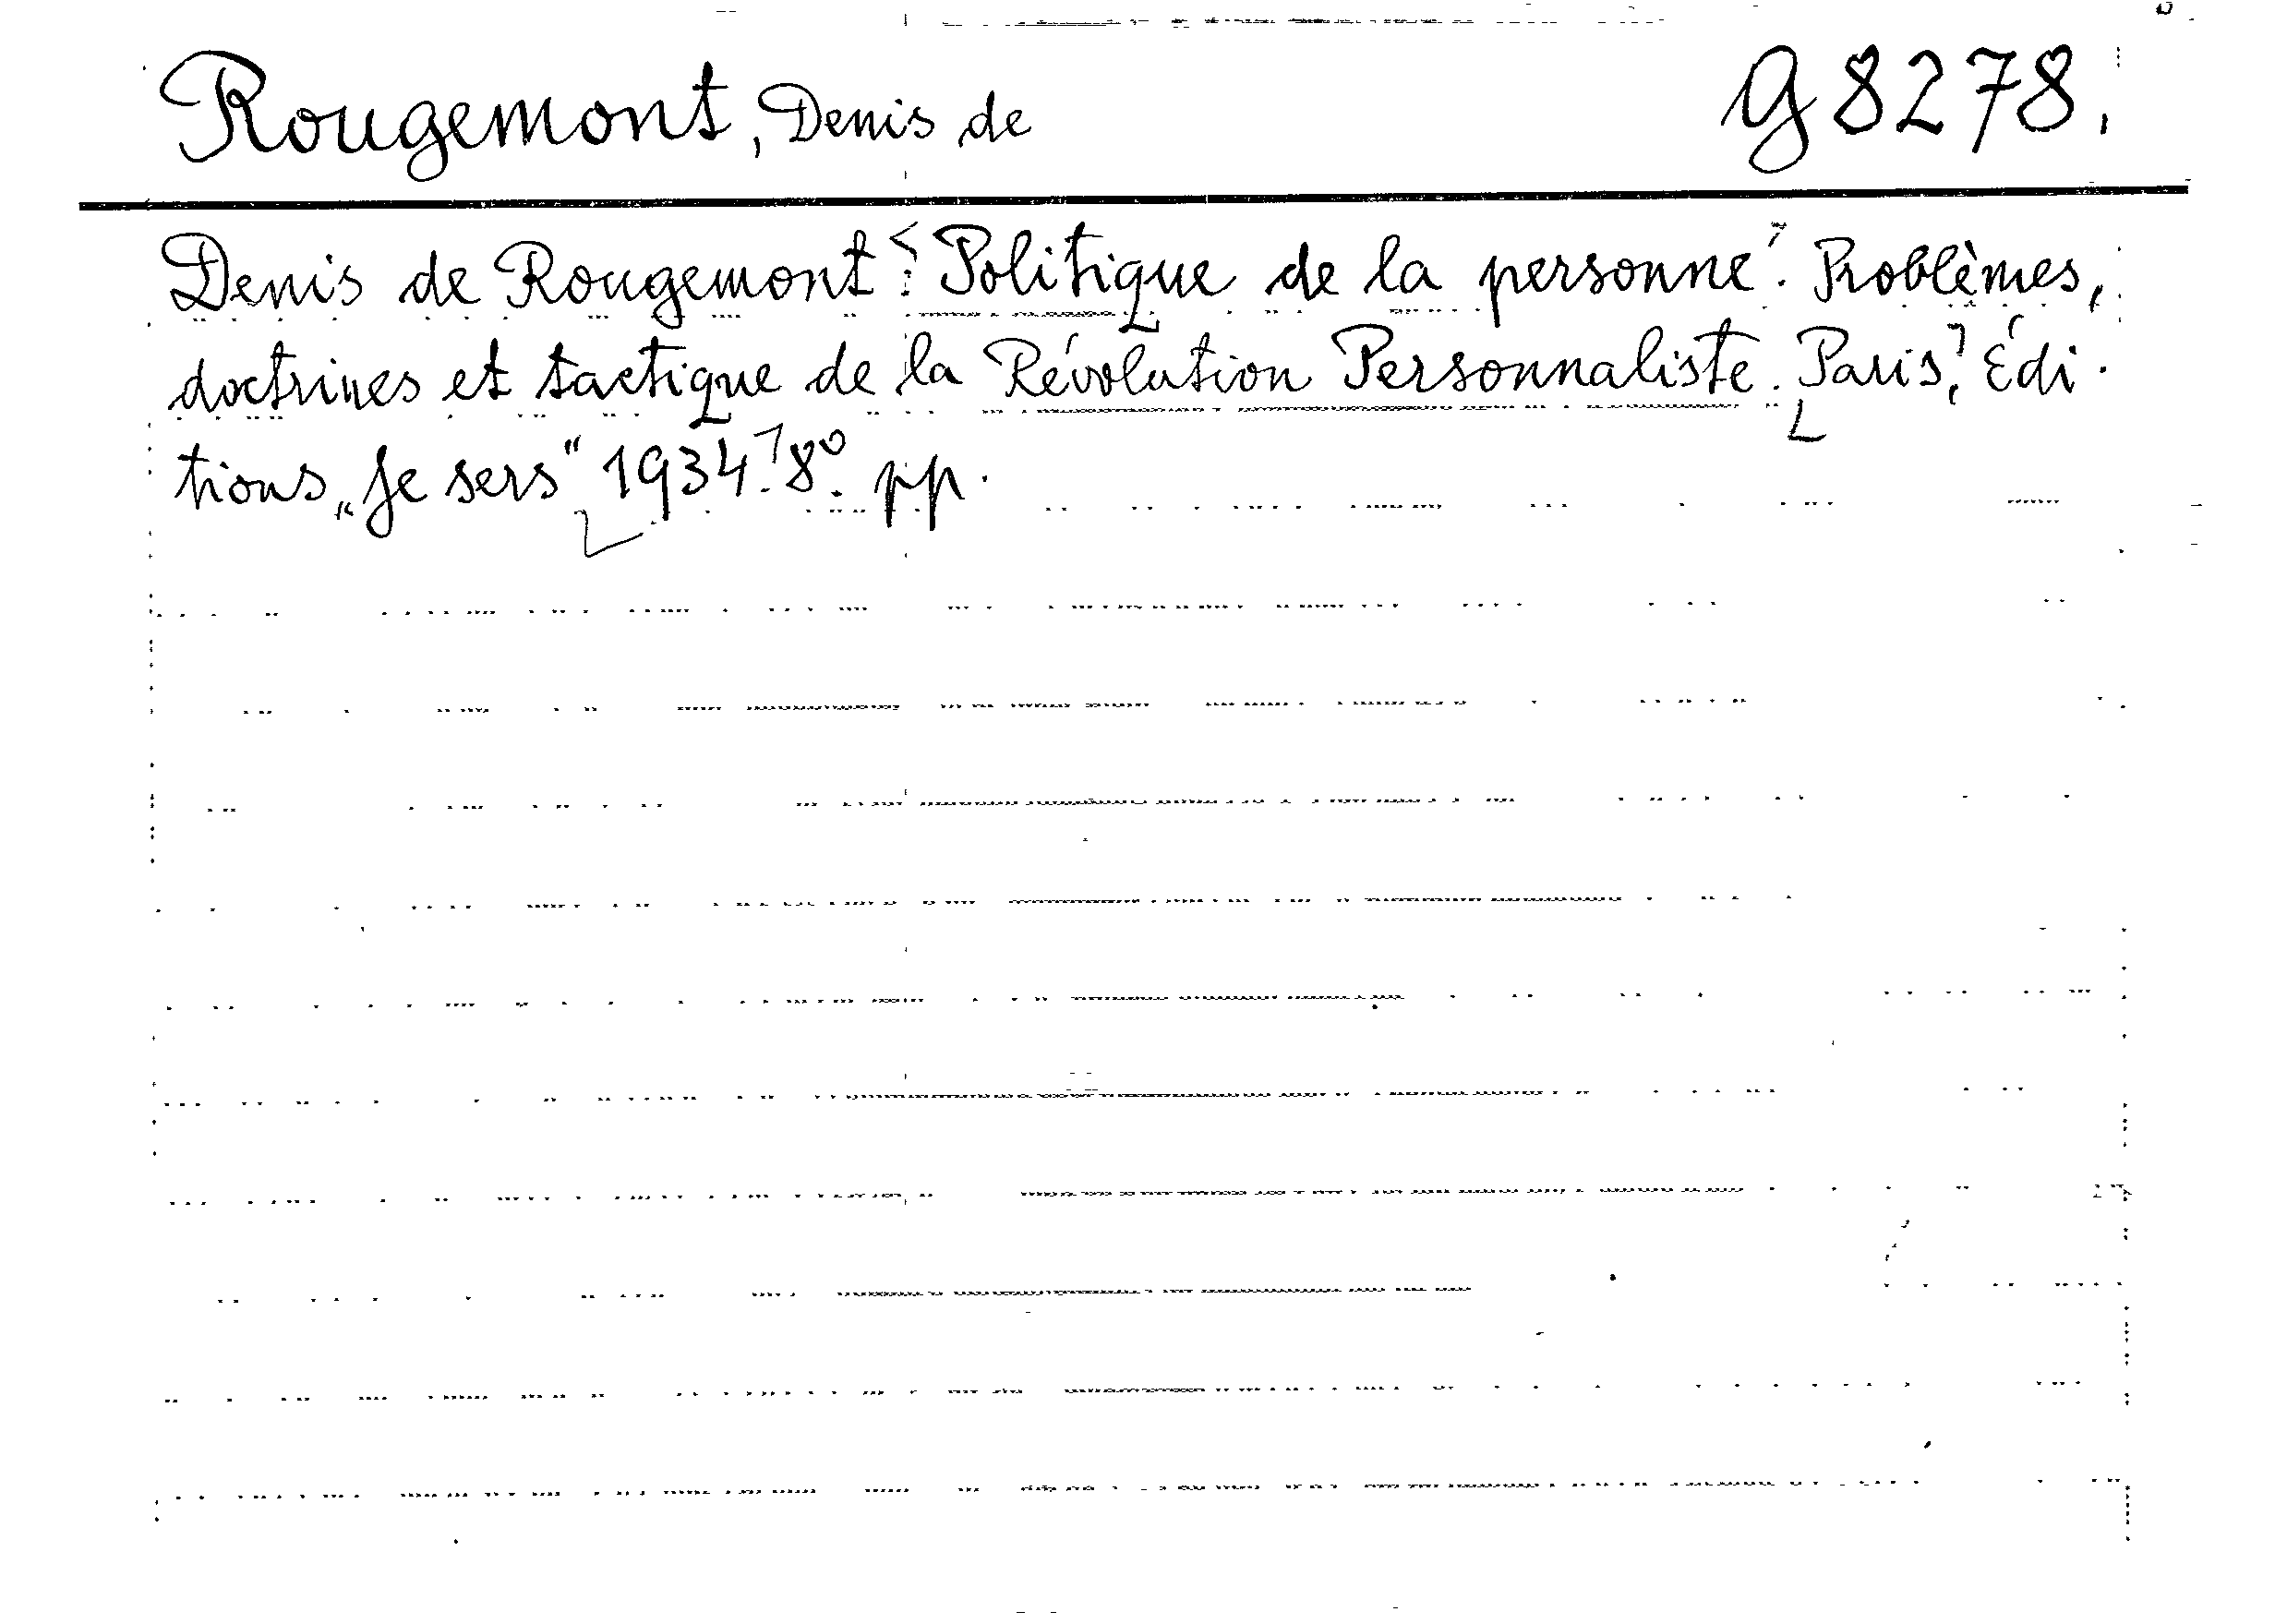 Rougemont, Denis de G 8278.
Denis de Rougemont: Politique de la personne. Problèmes,
doctrines et tactique de la Révolution Personnaliste. Paris, Édi-
tions „Je sers“ 1934. 8°. pp.